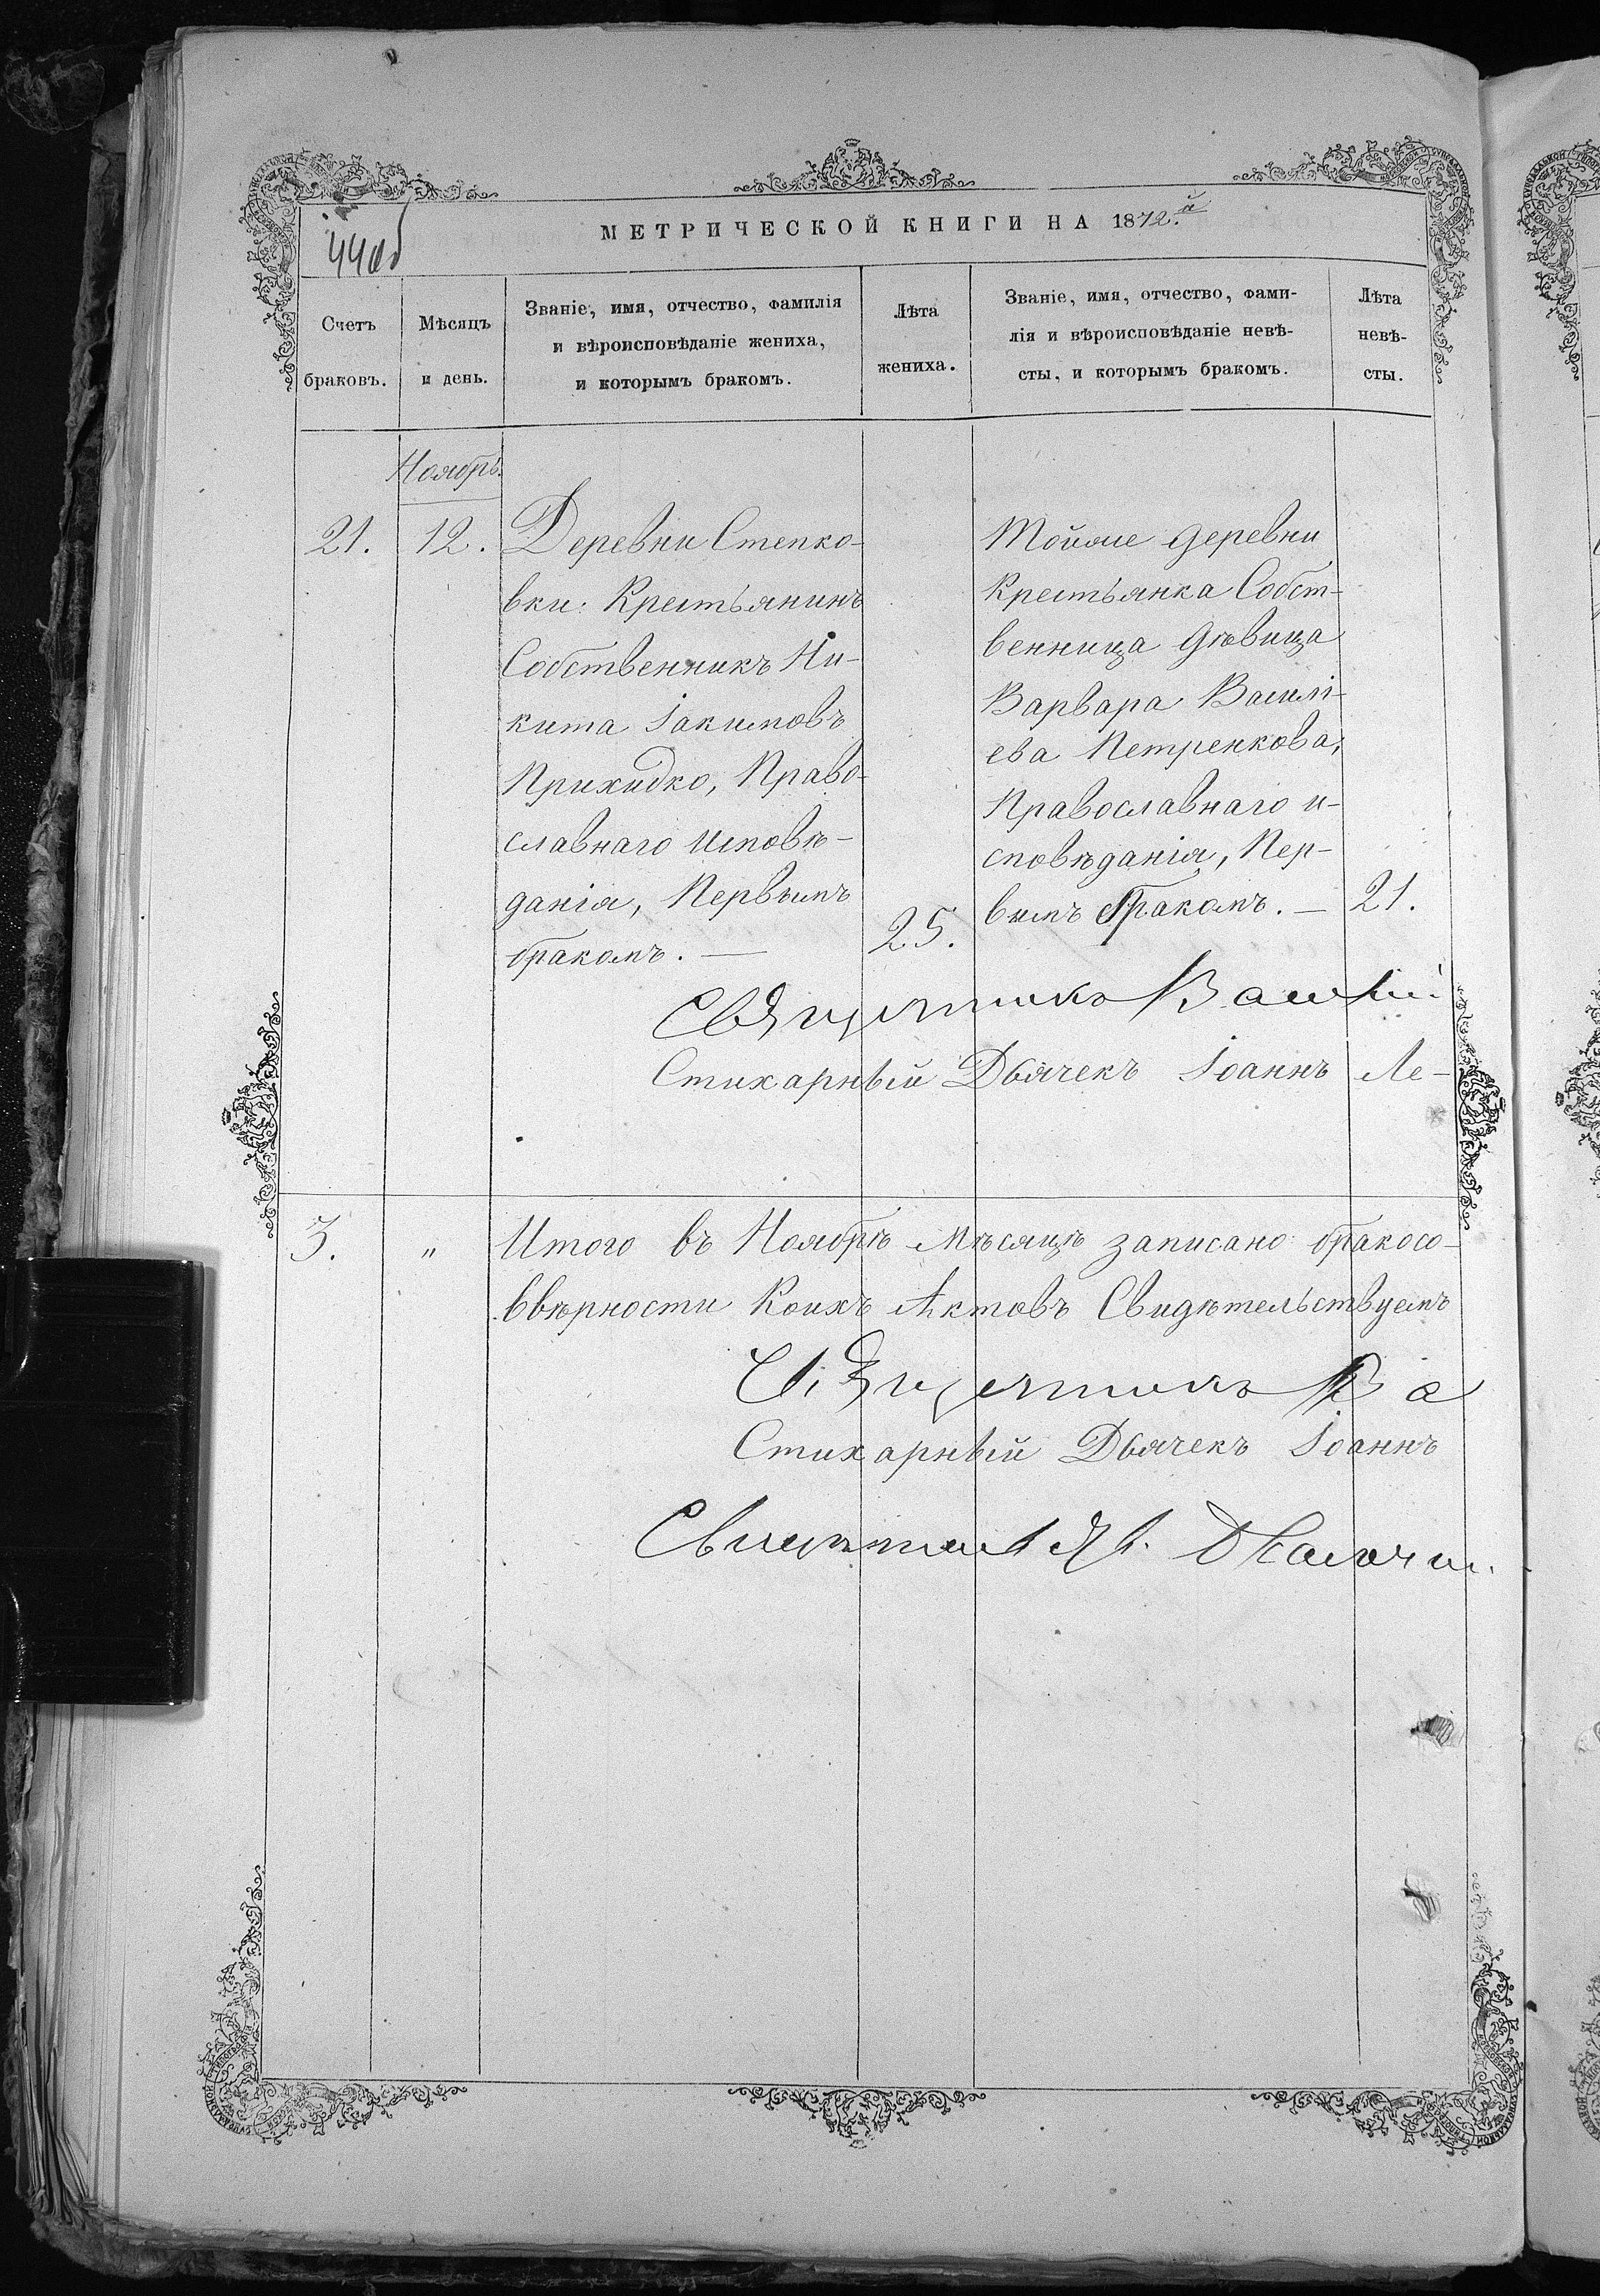 44об
МЕТРИЧЕСКОЙ КНИГИ НА 1872.й
Счетъ
браковъ.
Мѣсяцъ
и день.
Званіе, имя, отчество, фамилія
и вѣроисповѣданіе жениха,
и которымъ бракомъ.
Лѣта
жениха.
Званіе, имя, отчество, фами-
лія и вѣроисповѣданіе невѣ-
сты, и которымъ бракомъ.
Лѣта
невѣ-
сты.
Ноябрь.
21.
12.
Деревни Степко-
вки: Крестьянинъ
Собственникъ Ни-
кита Іакимовъ
Прихидко, Право-
славнаго исповѣ-
данія, Первымъ
бракомъ. —
25.
Тойже деревни
Крестьянка Собст-
венница дѣвица
Варвара Василі-
ева Петренкова,
Православнаго и-
сповѣданія, Пер-
вымъ бракомъ. —
21.
Священникъ Василій
Стихарный Дьячекъ Іоаннъ Ле-
3.
"
Итого въ Ноябрѣ Мѣсяцѣ записано бракосо-
Ввѣрности Коихъ Актовъ Свидѣтельствуемъ
Священникъ Ва
Стихарный Дьячекъ Іоаннъ